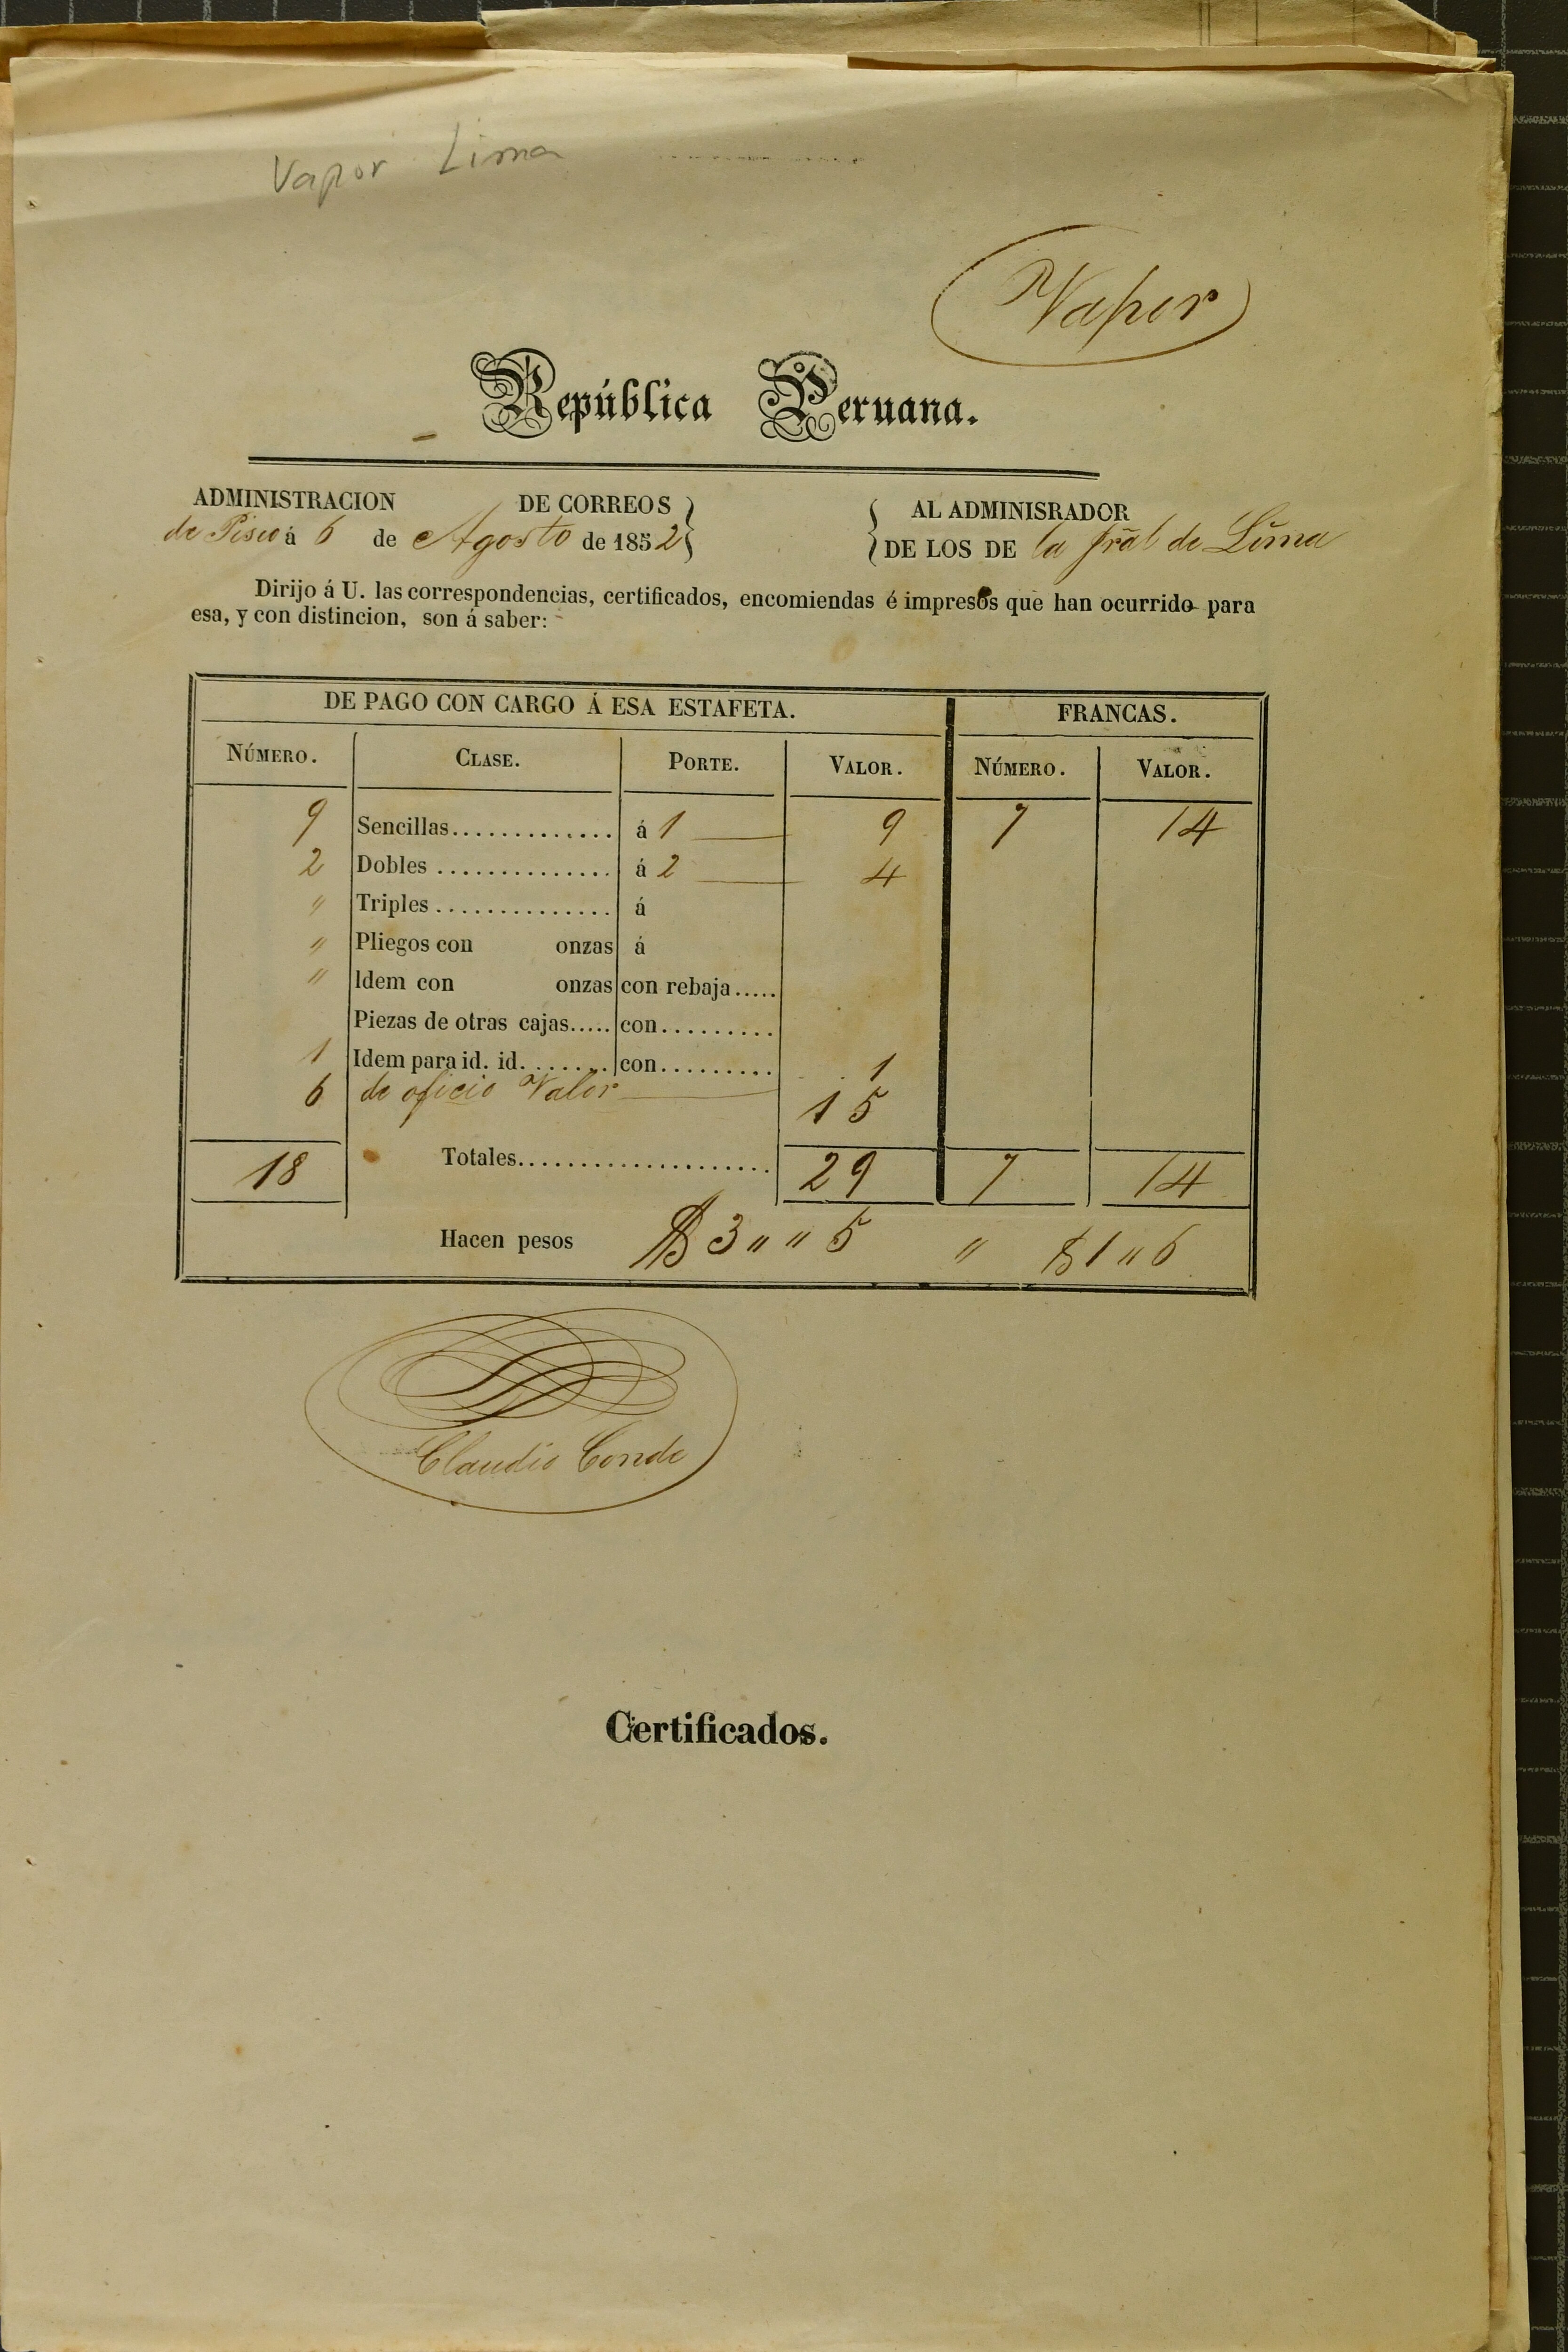 Vapor Lima
Vapor
República Peruana.
ADMINISTRACION DE CORREOS
de Pisco á 6 de Agosto de 1852
AL ADMINISRADOR
DE LOS DE la pral de Lima
Dirijo á U. las correspondencias, certificados, encomiendas é impresos que han ocurrido para
esa, y con distincion, son á saber:
DE PAGO CON CARGO Á ESA ESTAFETA. FRANCAS.
NÚMERO. CLASE. PORTE. VALOR. NÚMERO. VALOR.
9 Sencillas............. á 1 9 7 14
2 Dobles .............. á 2 4
" Triples .............. á
" Pliegos con onzas á
" Idem con onzas con rebaja.....
Piezas de otras cajas..... con.........
1 Idem para id. id........ con......... 1
6 de oficio Valor 15
18 Totales.................... 29 7 14
Hacen pesos $ 3 " " 5 " $ 1 " 6
Claudio Conde
Certificados.